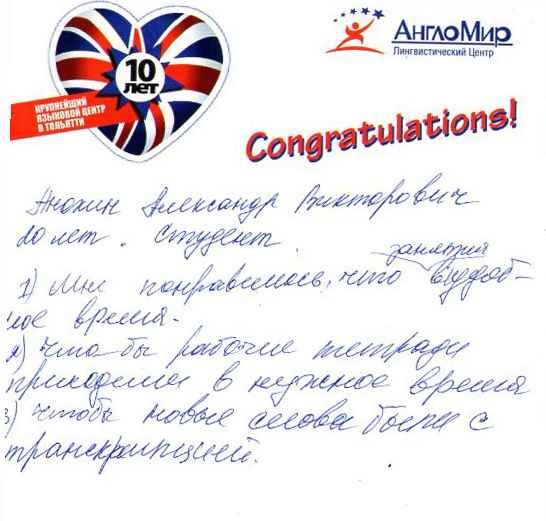 10
лет
КРУПНЕЙШИЙ
ЯЗЫКОВОЙ ЦЕНТР
В ТОЛЬЯТТИ
АнглоМир
Лингвистический Центр
Congratulations!
Анохин Александр Викторович
20 лет. Студент.
1) Мне понравилось, что занятия в удоб-
ное время.
2) что бы рабочие тетради
приходили в нужное время
3) чтобы новые слова были с
транскрипцией.